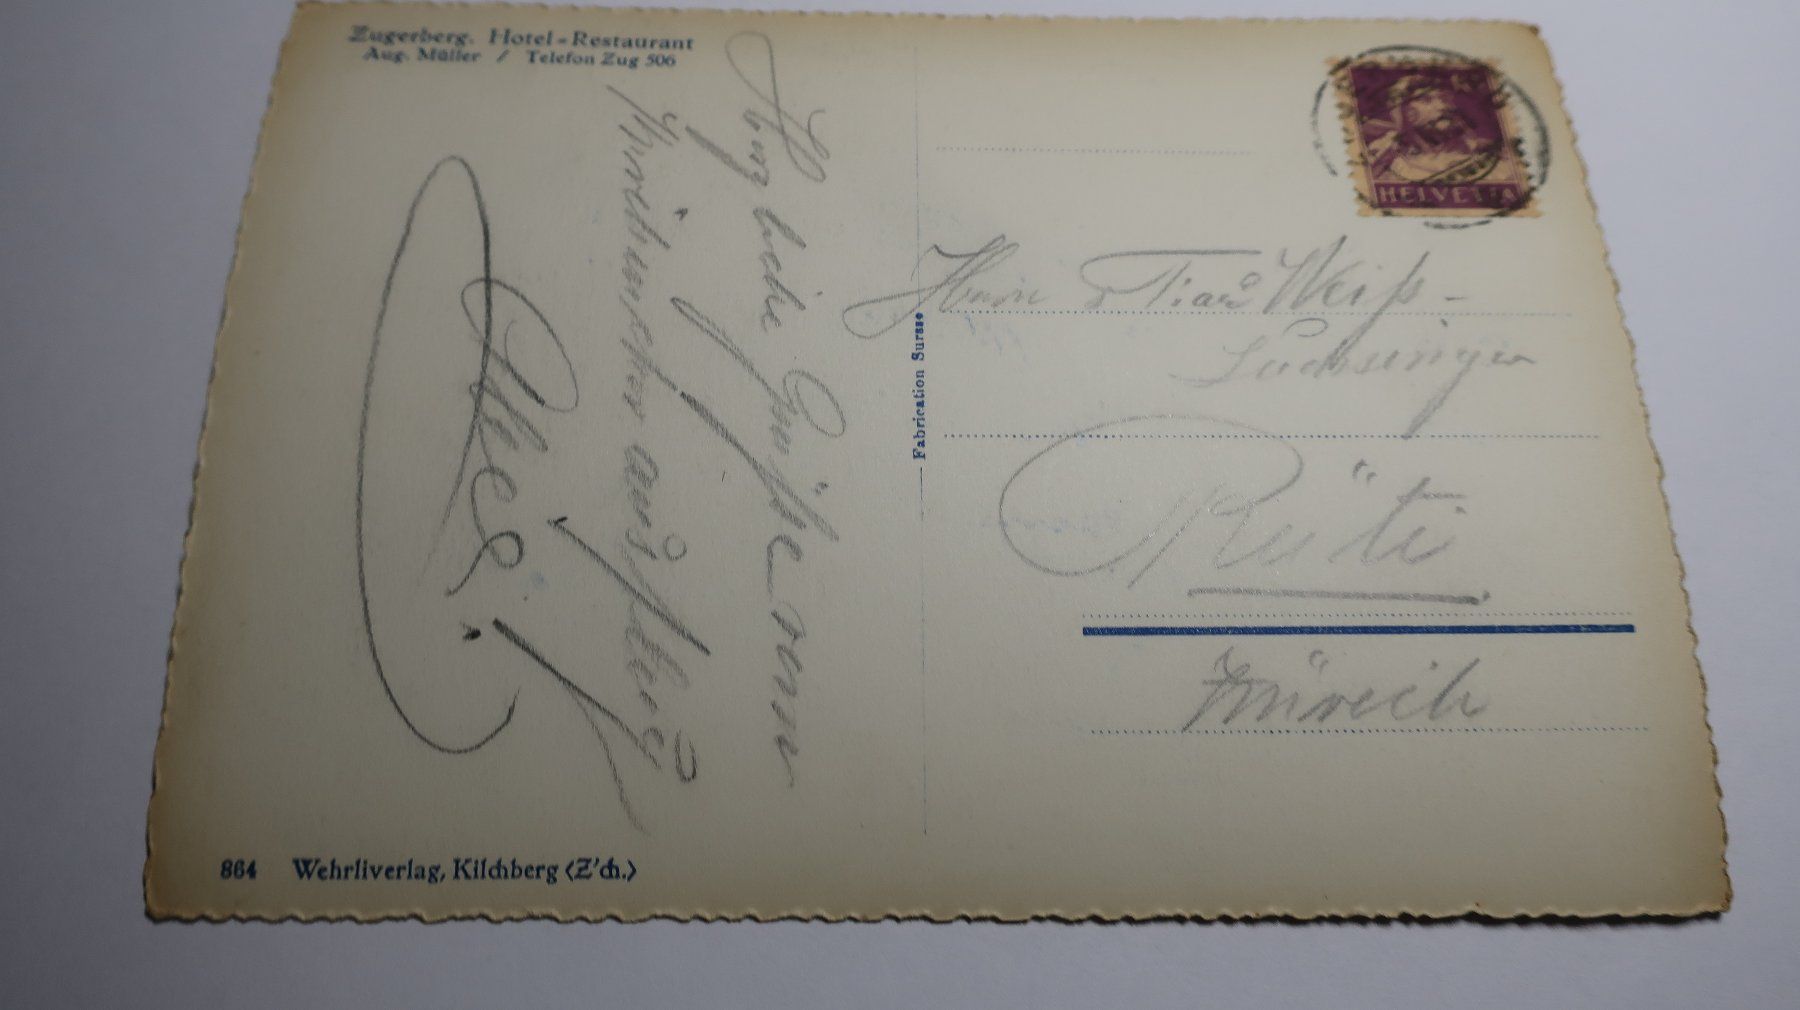 Zugerberg. Hotel-Restaurant
Aug. Müller / Telefon Zug 506
Herzliche Grüße vom
HELVETIA
Herrn & Frau Weiß-
Luchsinger
Rüti
Zürich
Fabrication Suisse
864 Wehrliverlag, Kilchberg (Z'ch.)